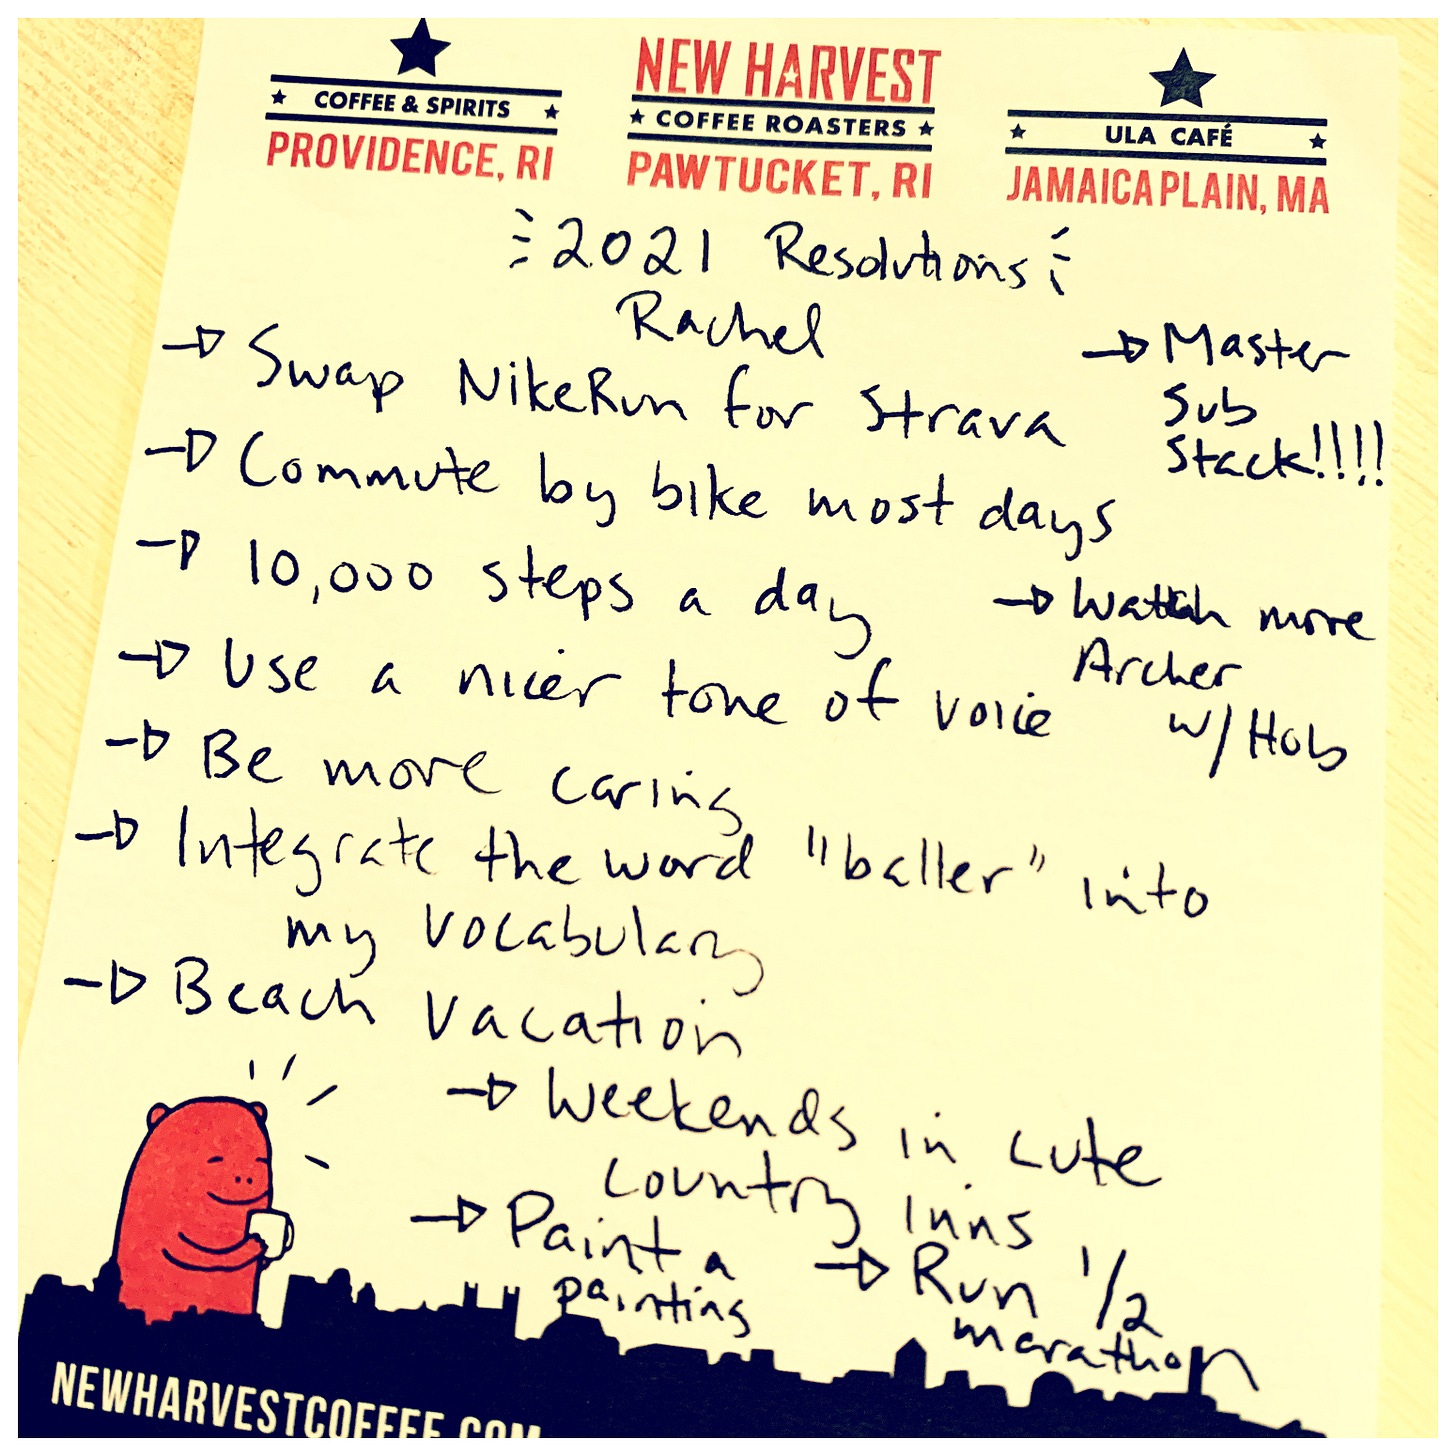 COFFEE & SPIRITS
PROVIDENCE, RI
NEW HARVEST
COFFEE ROASTERS
PAWTUCKET, RI
ULA CAFÉ
JAMAICA PLAIN, MA
2021 Resolutions
Rachel
→ Swap NikeRun for Strava
→ Master
Sub
Stack!!!!
→ Commute by bike most days
→ 10,000 steps a day
→ Watch more
Archer
w/ Hob
→ Use a nicer tone of voice
→ Be more caring
→ Integrate the word "baller" into
my vocabulary
→ Beach vacation
→ Weekends in cute
country inns
→ Paint a
painting
→ Run 1/2
marathon
NEWHARVESTCOFFEE.COM